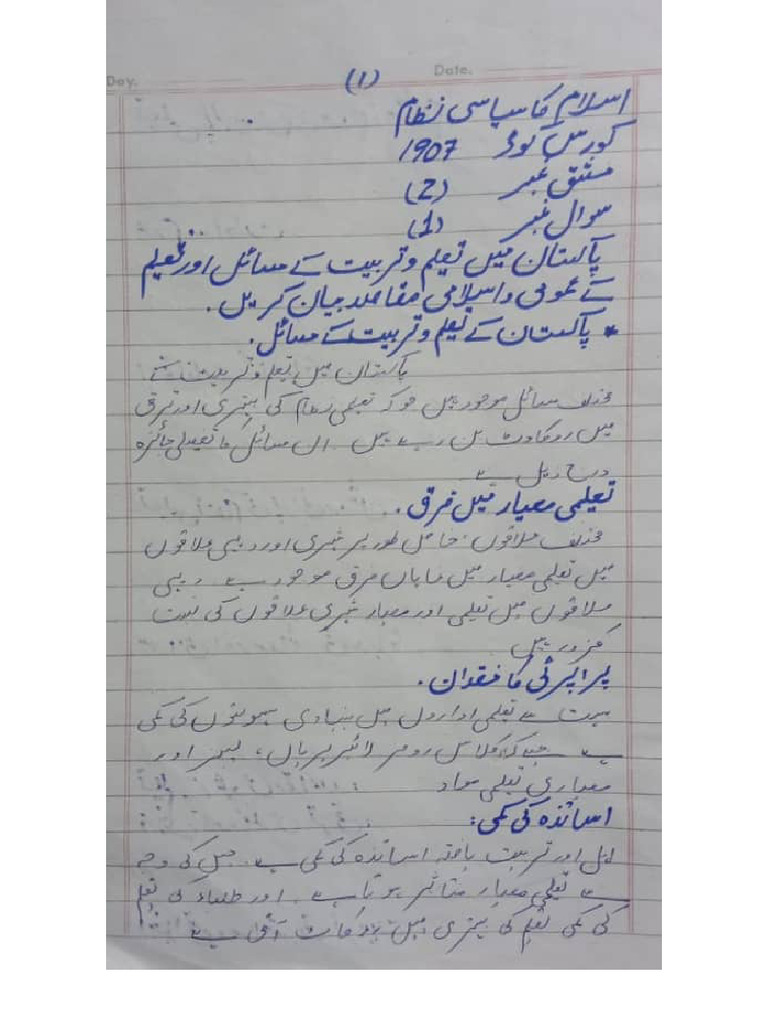 Day.
(1)
Date.
اسلام کا سیاسی نظام
کورس کوڈ 1907
مشق نمبر (2)
سوال نمبر (1)
پاکستان میں تعلیم و تربیت کے مسائل اور تعلیم
کے عمومی و اسلامی مقاصد بیان کریں.
* پاکستان کے تعلیم و تربیت کے مسائل.
پاکستان میں تعلیم و تربیت کے
مختلف مسائل موجود ہیں جو کہ تعلیمی نظام کی بہتری اور ترقی
میں رکاوٹ بن رہے ہیں۔ ان مسائل کا تفصیلی جائزہ
درج ذیل ہے
تعلیمی معیار میں فرق.
مختلف علاقوں، خاص طور پر شہری اور دیہی علاقوں
میں تعلیمی معیار میں نمایاں فرق موجود ہے۔ دیہی
علاقوں میں تعلیمی اور معیار شہری علاقوں کی نسبت
کمزور ہیں
پراپرٹی کا فقدان.
بہت سے تعلیمی اداروں میں بنیادی سہولتوں کی کمی
ہے جیسے کہ کلاس رومز لائبریریاں، لیبز اور
معیاری تعلیمی مواد
اساتذہ کی کمی:
اہل اور تربیت یافتہ اساتذہ کی کمی ہے۔ جس کی وجہ
سے تعلیمی معیار متاثر ہوتا ہے۔ اور طلباء کی تعلیم
کی کمی تعلیم کی بہتری میں آتی ہے